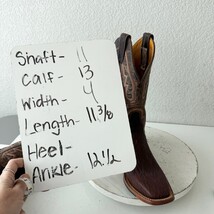 Shaft- 11
Calf- 13
Width- 4
Length- 11 3/8
Heel-
Ankle- 12 1/2